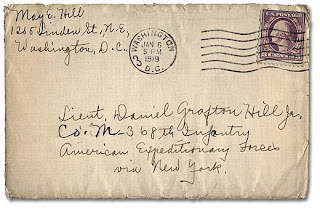 May E. Hill
1205 Linden St, N.E,
Washington, D.C.
WASHINGTON
JAN 6
5 PM
1919
D.C.
U.S. POSTAGE
Lieut. Daniel Grafton Hill Jr.
Co. M - 368th Infantry
American Expeditionary Forces
via New York.